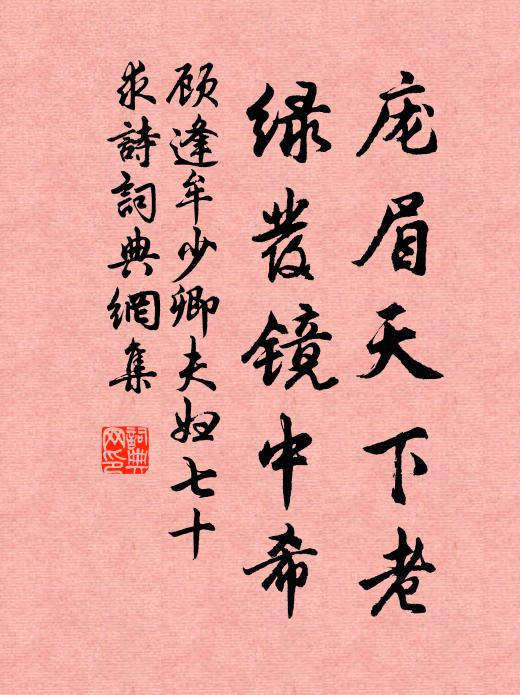 庞眉天下老
绿发镜中希
顾逢牟少卿夫妇七十
求詩詞典網集
詞典网印